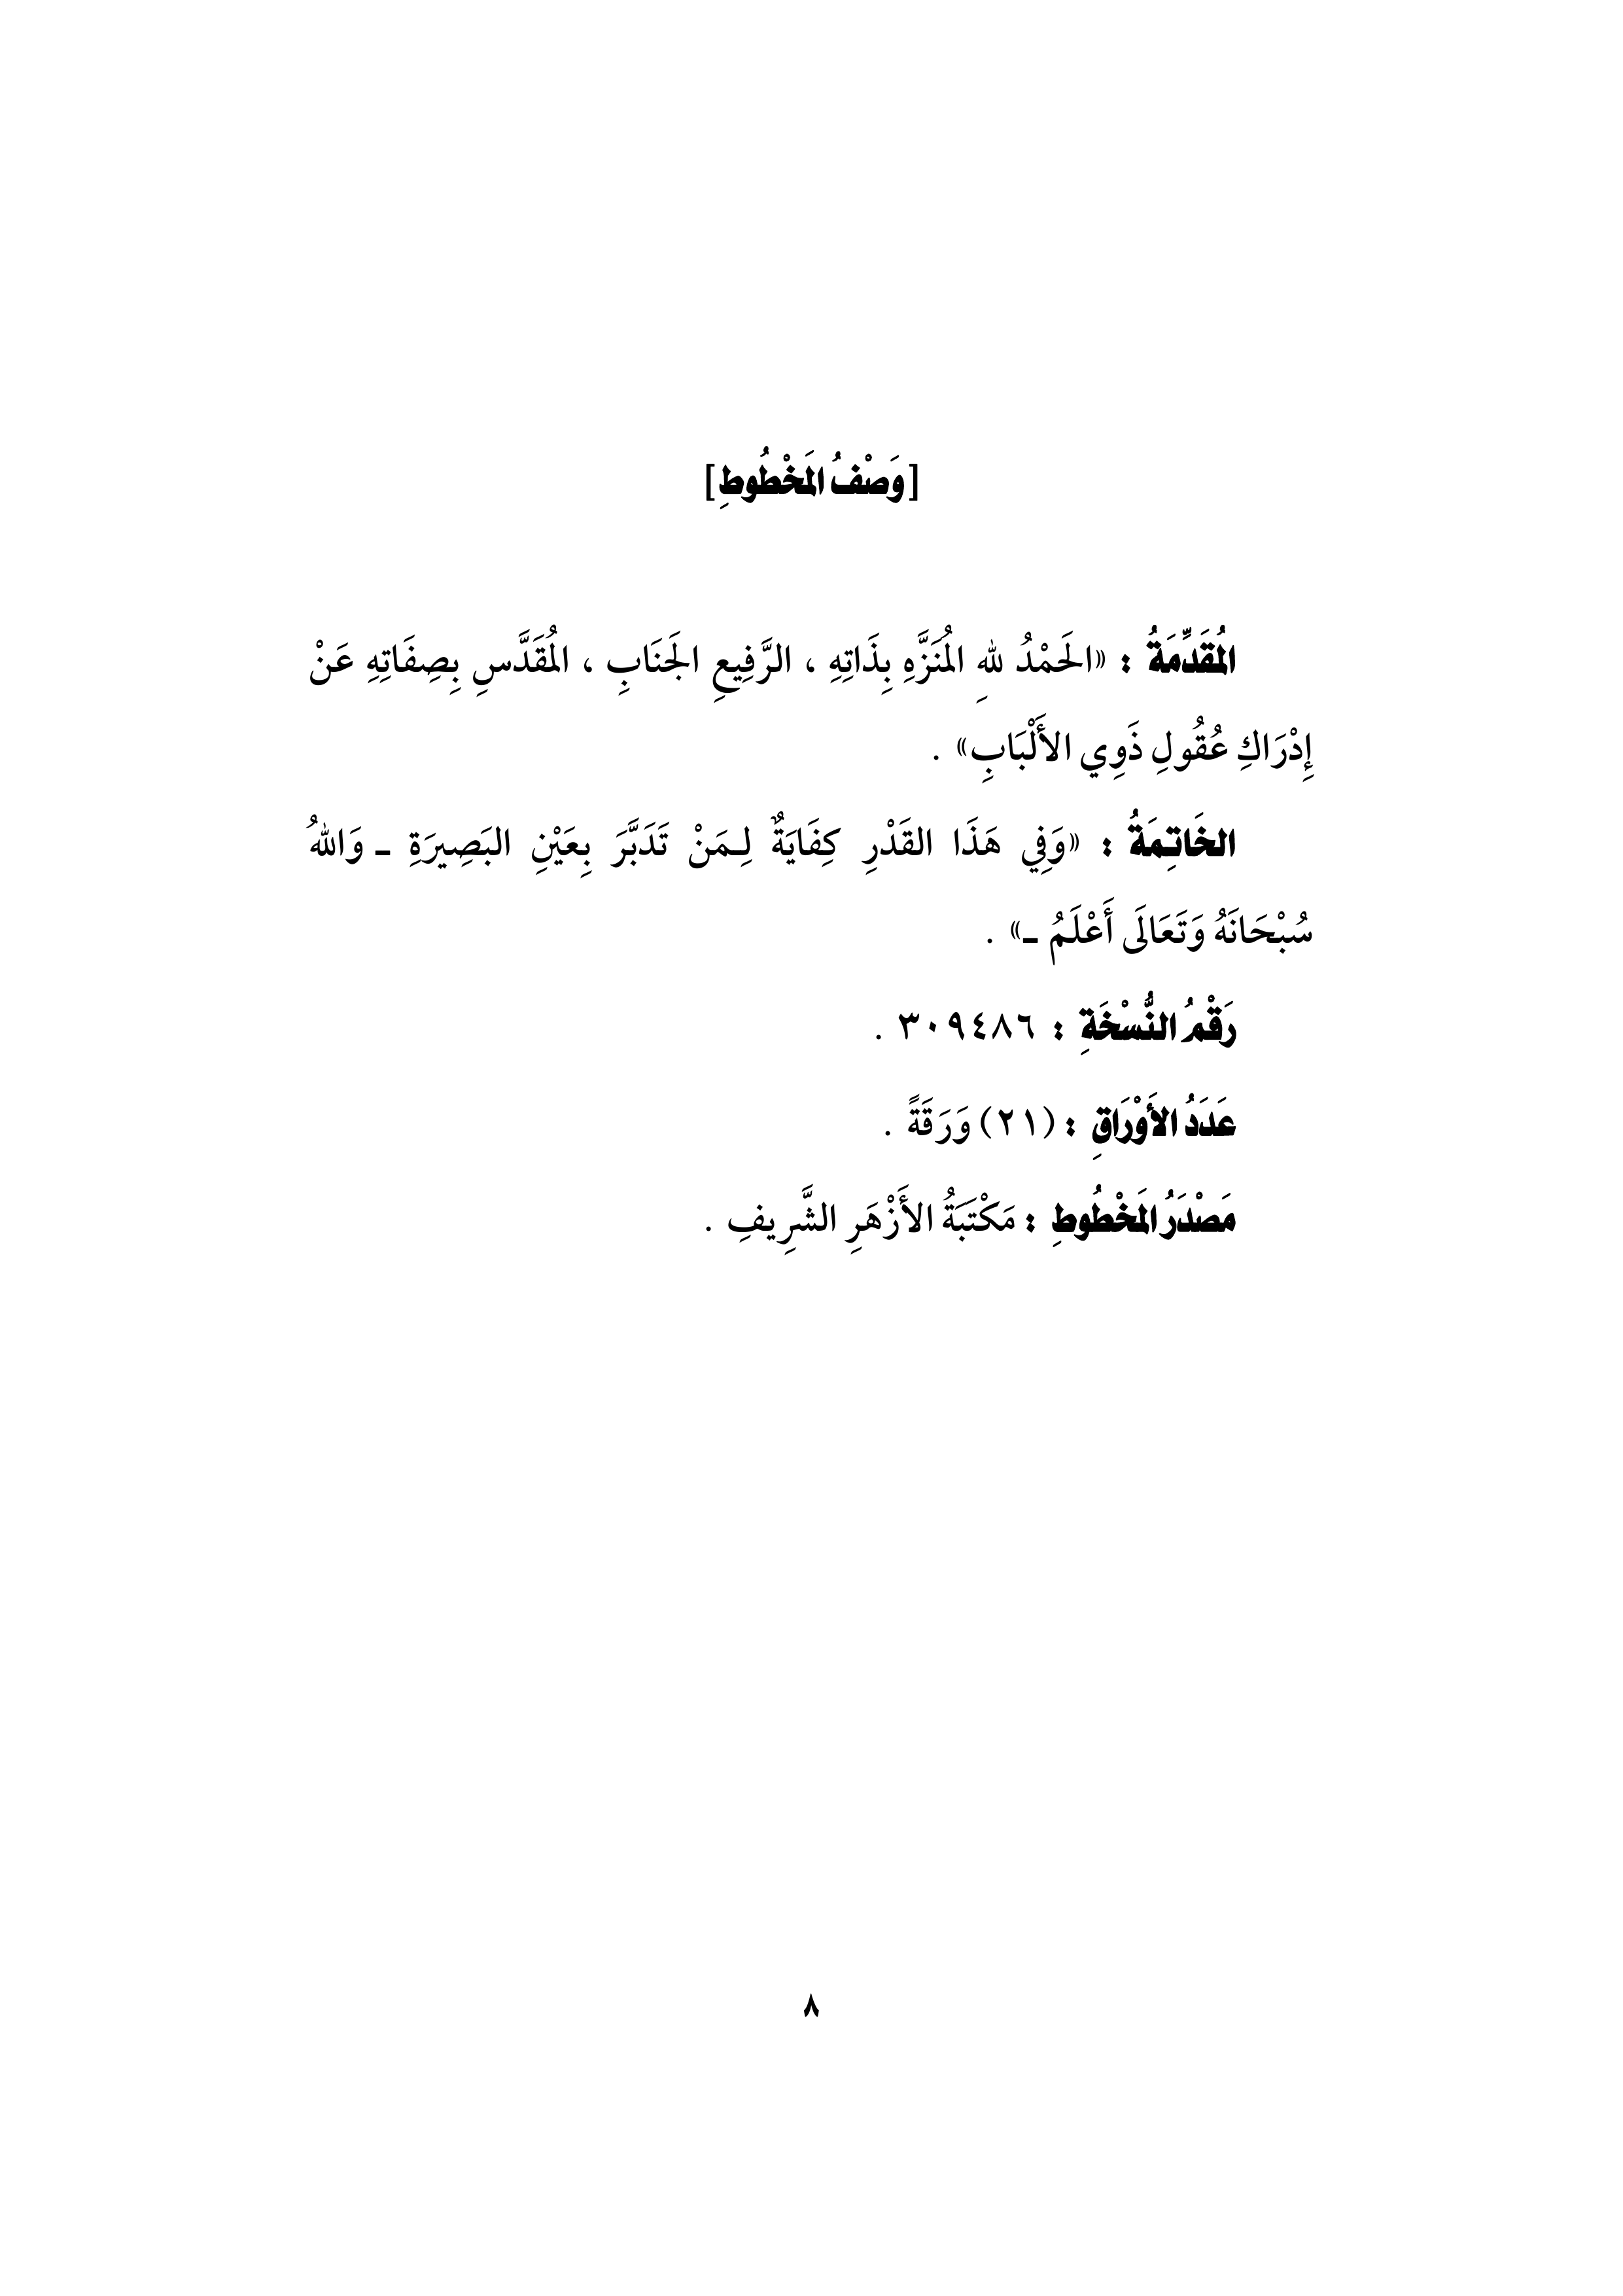 [وَصْفُ المَخْطُوطِ]
المُقَدِّمَةُ : «الحَمْدُ للهِ المُنَزَّهِ بِذَاتِهِ ، الرَّفِيعِ الجَنَابِ ، المُقَدَّسِ بِصِفَاتِهِ عَنْ
إِدْرَاكِ عُقُولِ ذَوِي الأَلْبَابِ» .
الخَاتِمَةُ : «وَفِي هَذَا القَدْرِ كِفَايَةٌ لِـمَنْ تَدَبَّرَ بِعَيْنِ البَصِيرَةِ ـ وَاللهُ
سُبْحَانَهُ وَتَعَالَى أَعْلَمُ ـ» .
رَقْمُ النُّسْخَةِ : ٣٠٩٤٨٦ .
عَدَدُ الأَوْرَاقِ : (٢١) وَرَقَةً .
مَصْدَرُ المَخْطُوطِ : مَكْتَبَةُ الأَزْهَرِ الشَّرِيفِ .
٨